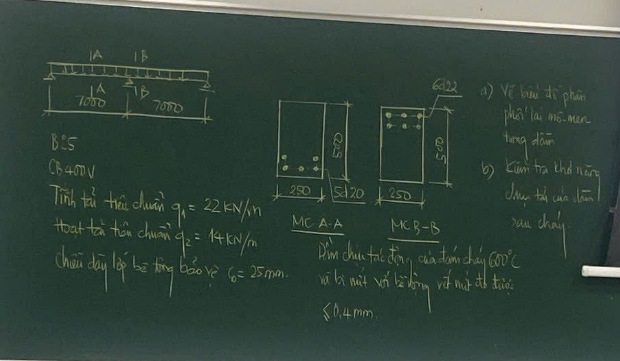 A B
A B
7000 7000
B25
CB400V
Tĩnh tải tiêu chuẩn q1 = 22 KN/m
Hoạt tải tiêu chuẩn q2 = 14 KN/m
Chiều dày lớp bê tông bảo vệ c0 = 25mm.
500
250
5d20
MC A-A
6d22
500
250
MC B-B
Dầm chịu tác động của đám cháy 600°C
và bị nứt với bề rộng vết nứt đo được
≤ 0,4mm.
a) Vẽ biểu đồ phân
phối lại mô-men
trong dầm
b) Kiểm tra khả năng
chịu tải của dầm
sau cháy.